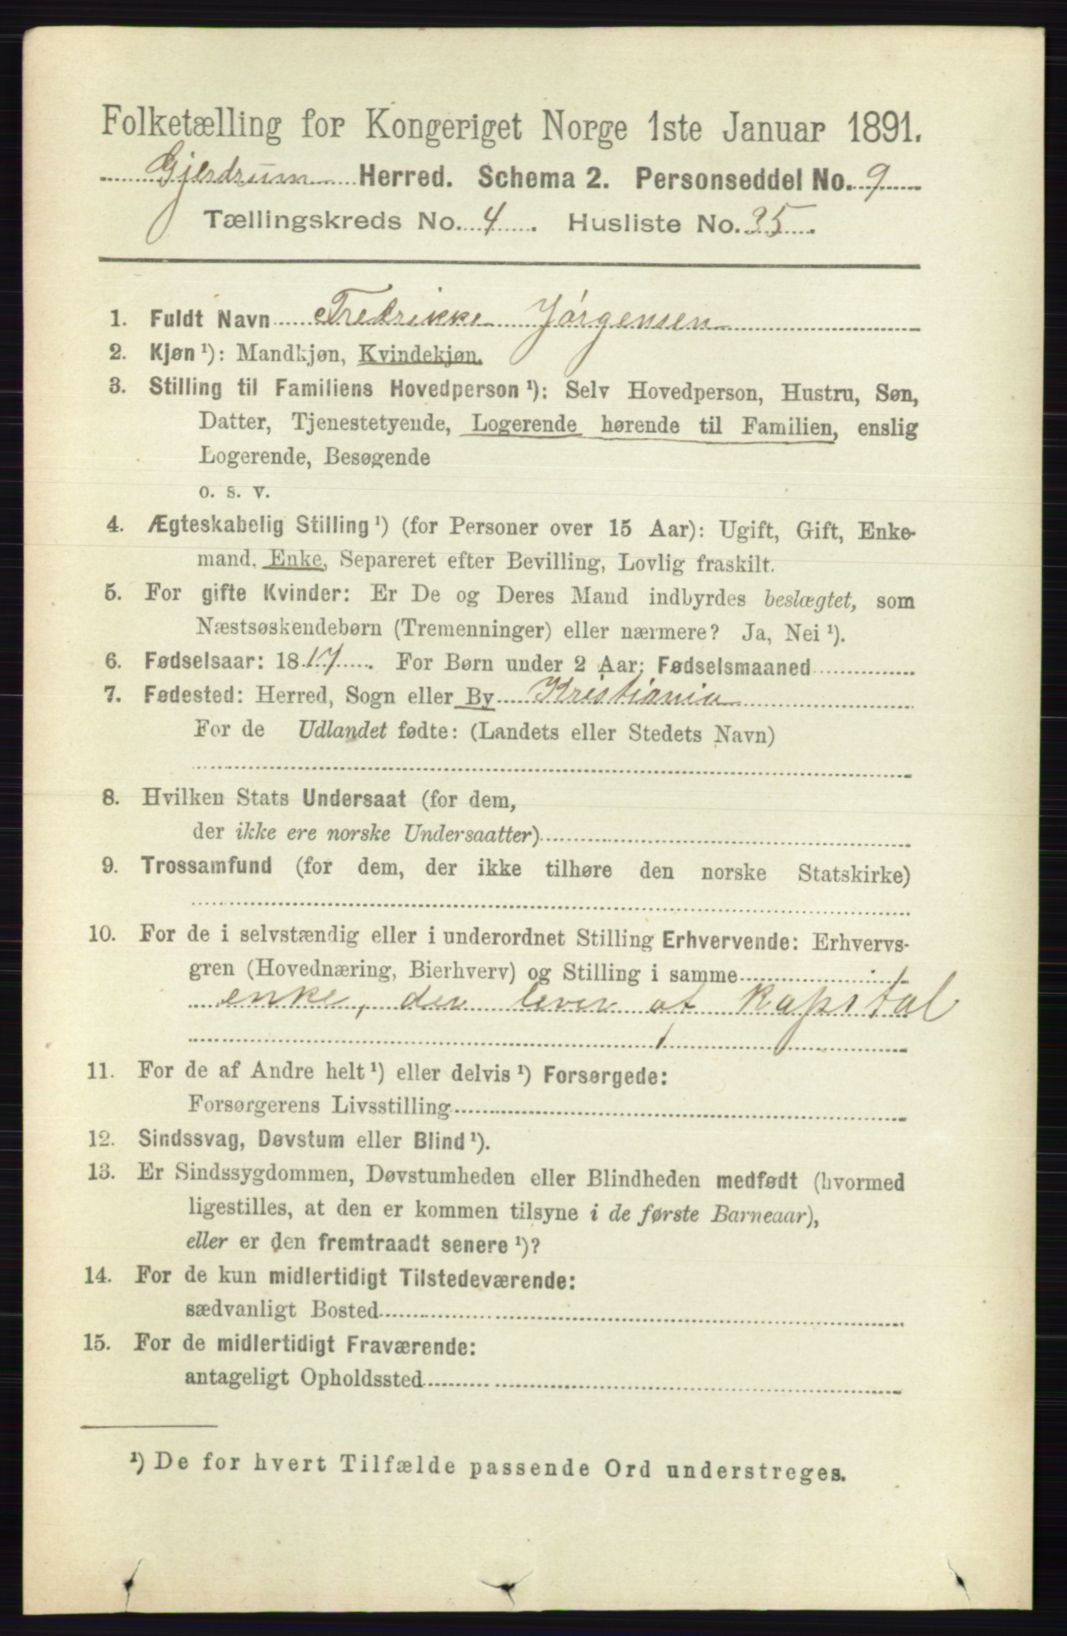 Folketælling for Kongeriget Norge 1ste Januar 1891.
Gjerdrum Herred. Schema 2. Personseddel No. 9
Tællingskreds No. 4. Husliste No. 35.
1. Fuldt Navn Fredrikke Jørgensen
2. Kjøn ¹): Mandkjøn, Kvindekjøn.
3. Stilling til Familiens Hovedperson ¹): Selv Hovedperson, Hustru, Søn,
Datter, Tjenestetyende, Logerende hørende til Familien, enslig
Logerende, Besøgende
o. s. v.
4. Ægteskabelig Stilling ¹) (for Personer over 15 Aar): Ugift, Gift, Enke-
mand, Enke, Separeret efter Bevilling, Lovlig fraskilt.
5. For gifte Kvinder: Er De og Deres Mand indbyrdes beslægtet, som
Næstsøskendebørn (Tremenninger) eller nærmere? Ja, Nei ¹).
6. Fødselsaar: 1817. For Børn under 2 Aar: Fødselsmaaned
7. Fødested: Herred, Sogn eller By Kristiania
For de Udlandet fødte: (Landets eller Stedets Navn)
8. Hvilken Stats Undersaat (for dem,
der ikke ere norske Undersaatter)
9. Trossamfund (for dem, der ikke tilhøre den norske Statskirke)
10. For de i selvstændig eller i underordnet Stilling Erhvervende: Erhvervs-
gren (Hovednæring, Bierhverv) og Stilling i samme
enke, der lever af kapital
11. For de af Andre helt ¹) eller delvis ¹) Forsørgede:
Forsørgerens Livsstilling
12. Sindssvag, Døvstum eller Blind ¹).
13. Er Sindssygdommen, Døvstumheden eller Blindheden medfødt (hvormed
ligestilles, at den er kommen tilsyne i de første Barneaar),
eller er den fremtraadt senere ¹)?
14. For de kun midlertidigt Tilstedeværende:
sædvanligt Bosted
15. For de midlertidigt Fraværende:
antageligt Opholdssted
¹) De for hvert Tilfælde passende Ord understreges.